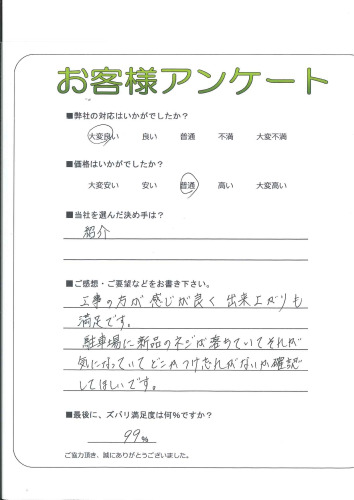 お客様アンケート
■弊社の対応はいかがでしたか?
大変良い 良い 普通 不満 大変不満
■価格はいかがでしたか?
大変安い 安い 普通 高い 大変高い
■当社を選んだ決め手は?
紹介
■ご感想・ご要望などをお書き下さい。
工事の方が感じが良く出来上がりも
満足です。
駐車場に新品のネジが落ちていてそれが
気になっていてどこかつけ忘れがないか確認
してほしいです。
■最後に、ズバリ満足度は何%ですか?
99%
ご協力頂き、誠にありがとうございました。